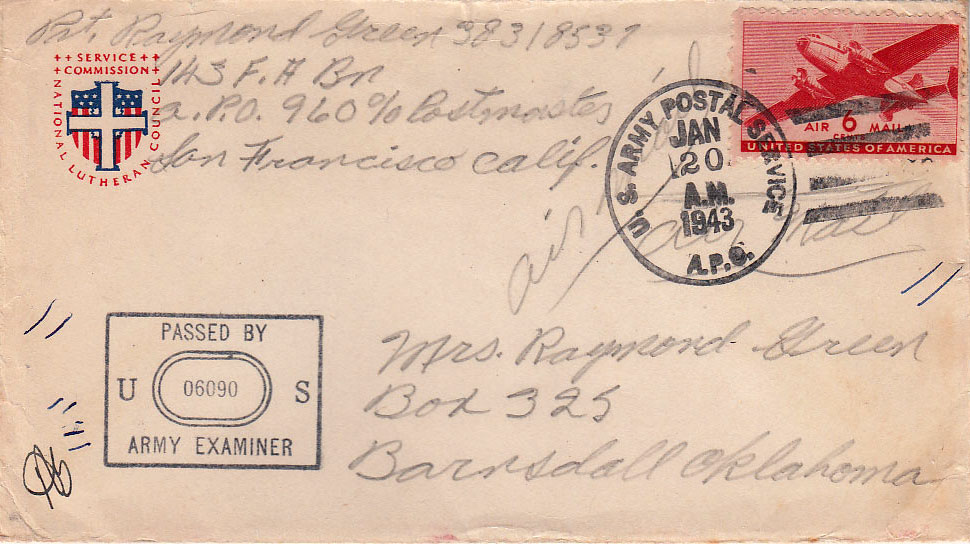 Pvt. Raymond Green 38318537
143 F.A Bn
a.P.O. 960 % Postmaster
San Francisco Calif.
++ SERVICE ++
+ COMMISSION +
NATIONAL LUTHERAN COUNCIL
U. S. ARMY POSTAL SERVICE
JAN
20
A.M.
1943
A.P.O.
AIR 6 MAIL
CENTS
UNITED STATES OF AMERICA
air mail
air mail
PASSED BY
U 06090 S
ARMY EXAMINER
Mrs. Raymond Green
Box 325
Barnsdall Oklahoma